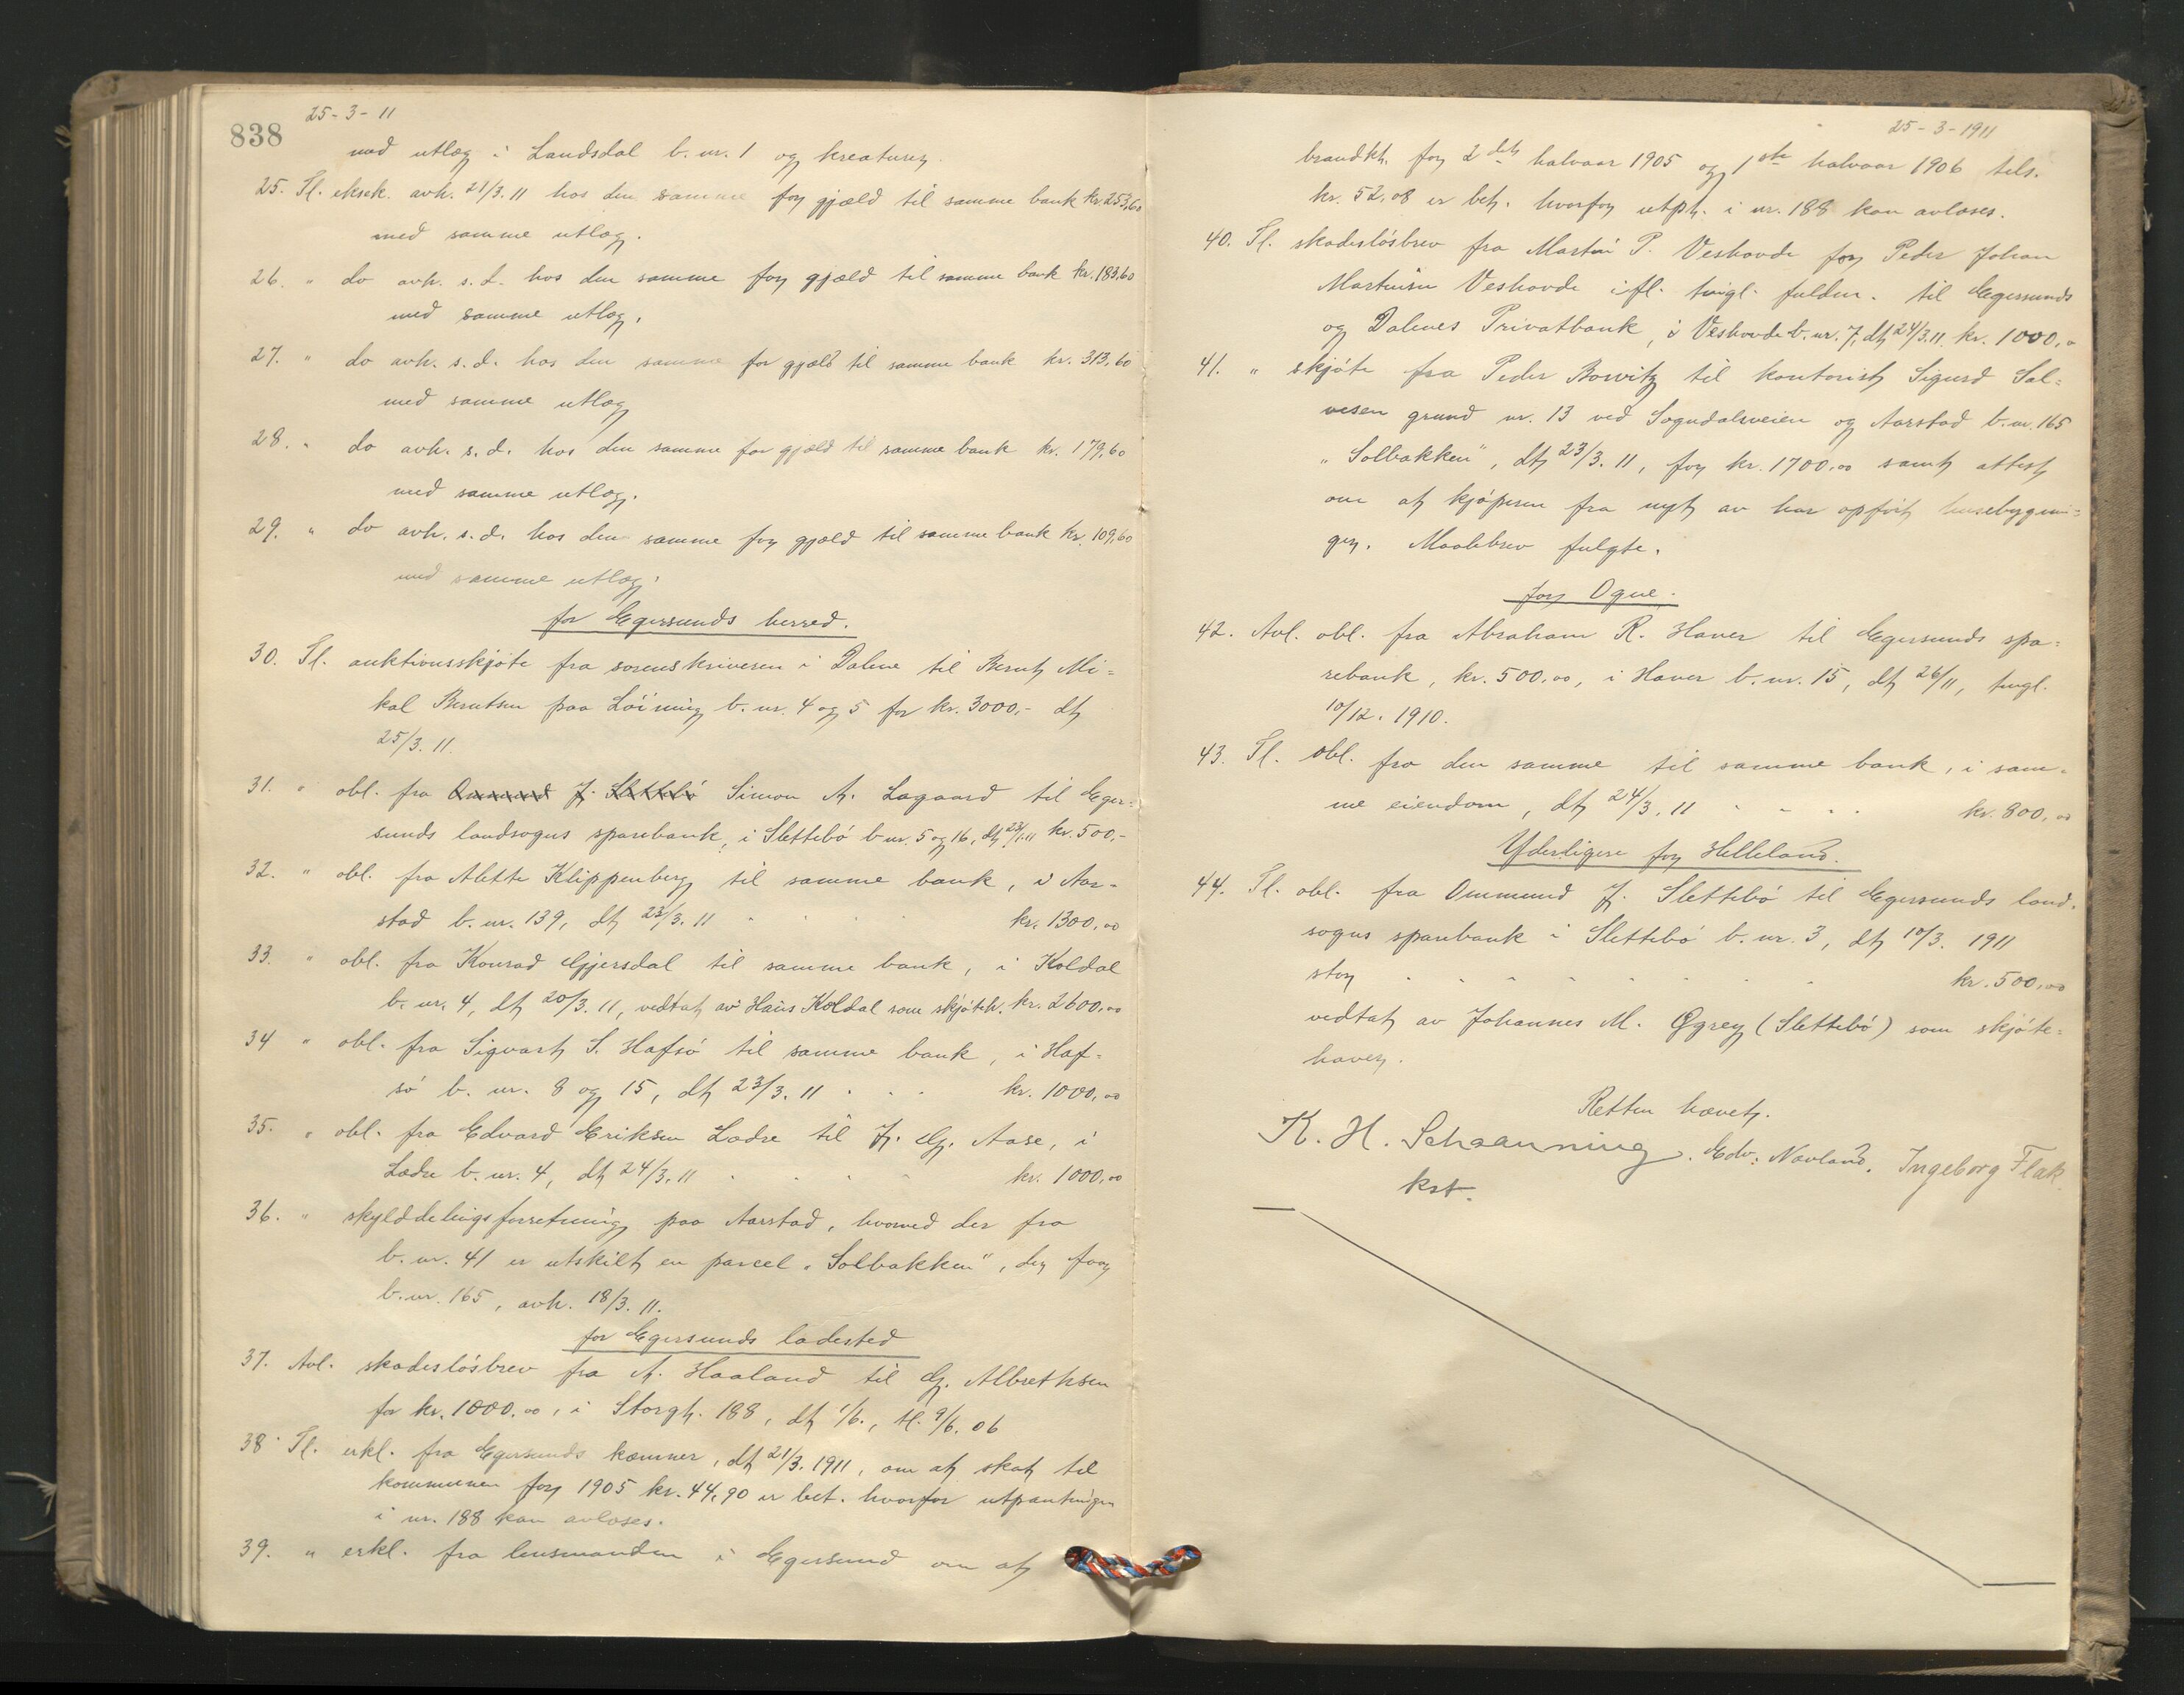 838
25-3-11
med utlæg i Landsdal b.nr. 1 og kreaturer.
25. Tl. eksek. avh. 21/3.11 hos den samme for gjæld til samme bank kr. 253,60
med samme utlæg.
26. " do avh. s.d. hos den samme for gjæld til samme bank kr. 183,60
med samme utlæg.
27. " do avh. s.d. hos den samme for gjæld til samme bank kr. 313,60
med samme utlæg
28. " do avh. s.d. hos den samme for gjæld til samme bank kr. 179,60
med samme utlæg.
29. " do avh. s.d. hos den samme for gjæld til samme bank kr. 109,60
med samme utlæg.
for Egersunds herred.
30. Tl. auktionsskjøte fra sorenskriveren i Dalene til Bernt Mi=
kal Berntsen paa Löining b.nr. 4 og 5 for kr. 3000,- dt
25/3.11.
31. " obl. fra Ommund J. Slettebö Simon A. Lagaard til Eger=
sunds landsogns sparebank, i Slettebö b.nr. 5 og 16, dt 23/1.11 kr. 500,-
32. " obl. fra Alette Klippenberg til samme bank, i Aar=
stad b.nr. 139, dt 23/3.11 kr. 1300,00
33. " obl. fra Konrad Gjersdal til samme bank, i Koldal
b.nr. 4, dt 20/3.11, vedtat av Hans Koldal som skjøteh. kr. 2600,00
34 " obl. fra Sigvart S. Hafsö til samme bank, i Haf=
sö b.nr. 8 og 15, dt 23/3.11 . . . kr. 1000,00
35. " obl. fra Edvard Eriksen Ladre til J. G. Aase, i
Ladre b.nr. 4, dt 24/3.11 . . . kr. 1000,00
36. " skylddelingsforretning paa Aarstad, hvorved der fra
b.nr. 41 er utskilt en parcel "Solbakken", der faar
b.nr. 165, avh. 18/3.11.
for Egersunds ladested
37. Avl. skadeslösbrev fra A. Haaland til G. Albrethsen
for kr. 1000.00, i Storgt. 188, dt 1/6., tl. 9/6.06
38 Tl. erkl. fra Egersunds kæmner, dt 21/3.1911, om at skat til
kommunen for 1905 kr. 44,90 er bet. hvorfor utpantningen
i nr. 188 kan avlæses.
39. " erkl. fra lensmanden i Egersund om at
25-3-1911
brandkt. for 2det halvaar 1905 og 1ste halvaar 1906 tils.
kr. 52,08 er bet. hvorfor utpt. i nr. 188 kan avlæses.
40. Tl. skadeslösbrev fra Martin P. Veshovde for Peder Johan
Martinsen Veshovde ifl. tingl. fuldm. til Egersunds
og Dalenes Privatbank, i Veshovde b.nr. 7, dt 24/3.11. kr. 1000,00
41. " skjöte fra Peder Bowitz til kontorist Sigurd Sal=
vesen grund nr. 13 ved Sogndalsveien og Aarstad b.nr. 165
"Solbakken", dt 23/3.11, for kr. 1700.00 samt attest
om at kjøperen fra nyt av har opført husebygnin=
ger. Maalebrev fulgte.
for Ogne.
42. Avl. obl. fra Abraham R. Haver til Egersunds spa=
rebank, kr. 500,00, i Haver b.nr. 15, dt 26/11, tingl.
10/12.1910.
43. Tl. obl. fra den samme til samme bank, i sam=
me eiendom, dt 24/3.11 . . . kr. 800,00
Yderligere for Helleland.
44. Tl. obl. fra Ommund J. Slettebö til Egersunds land.
sogns sparebank i Slettebö b.nr. 3, dt 10/3. 1911
stor . . . . kr. 500,00
vedtat av Johannes M. (Slettebö) som skjöte=
haver.
Retten hævet.
K. H. Schaanning. Edv: Navland. Ingeborg Flak.
kst.